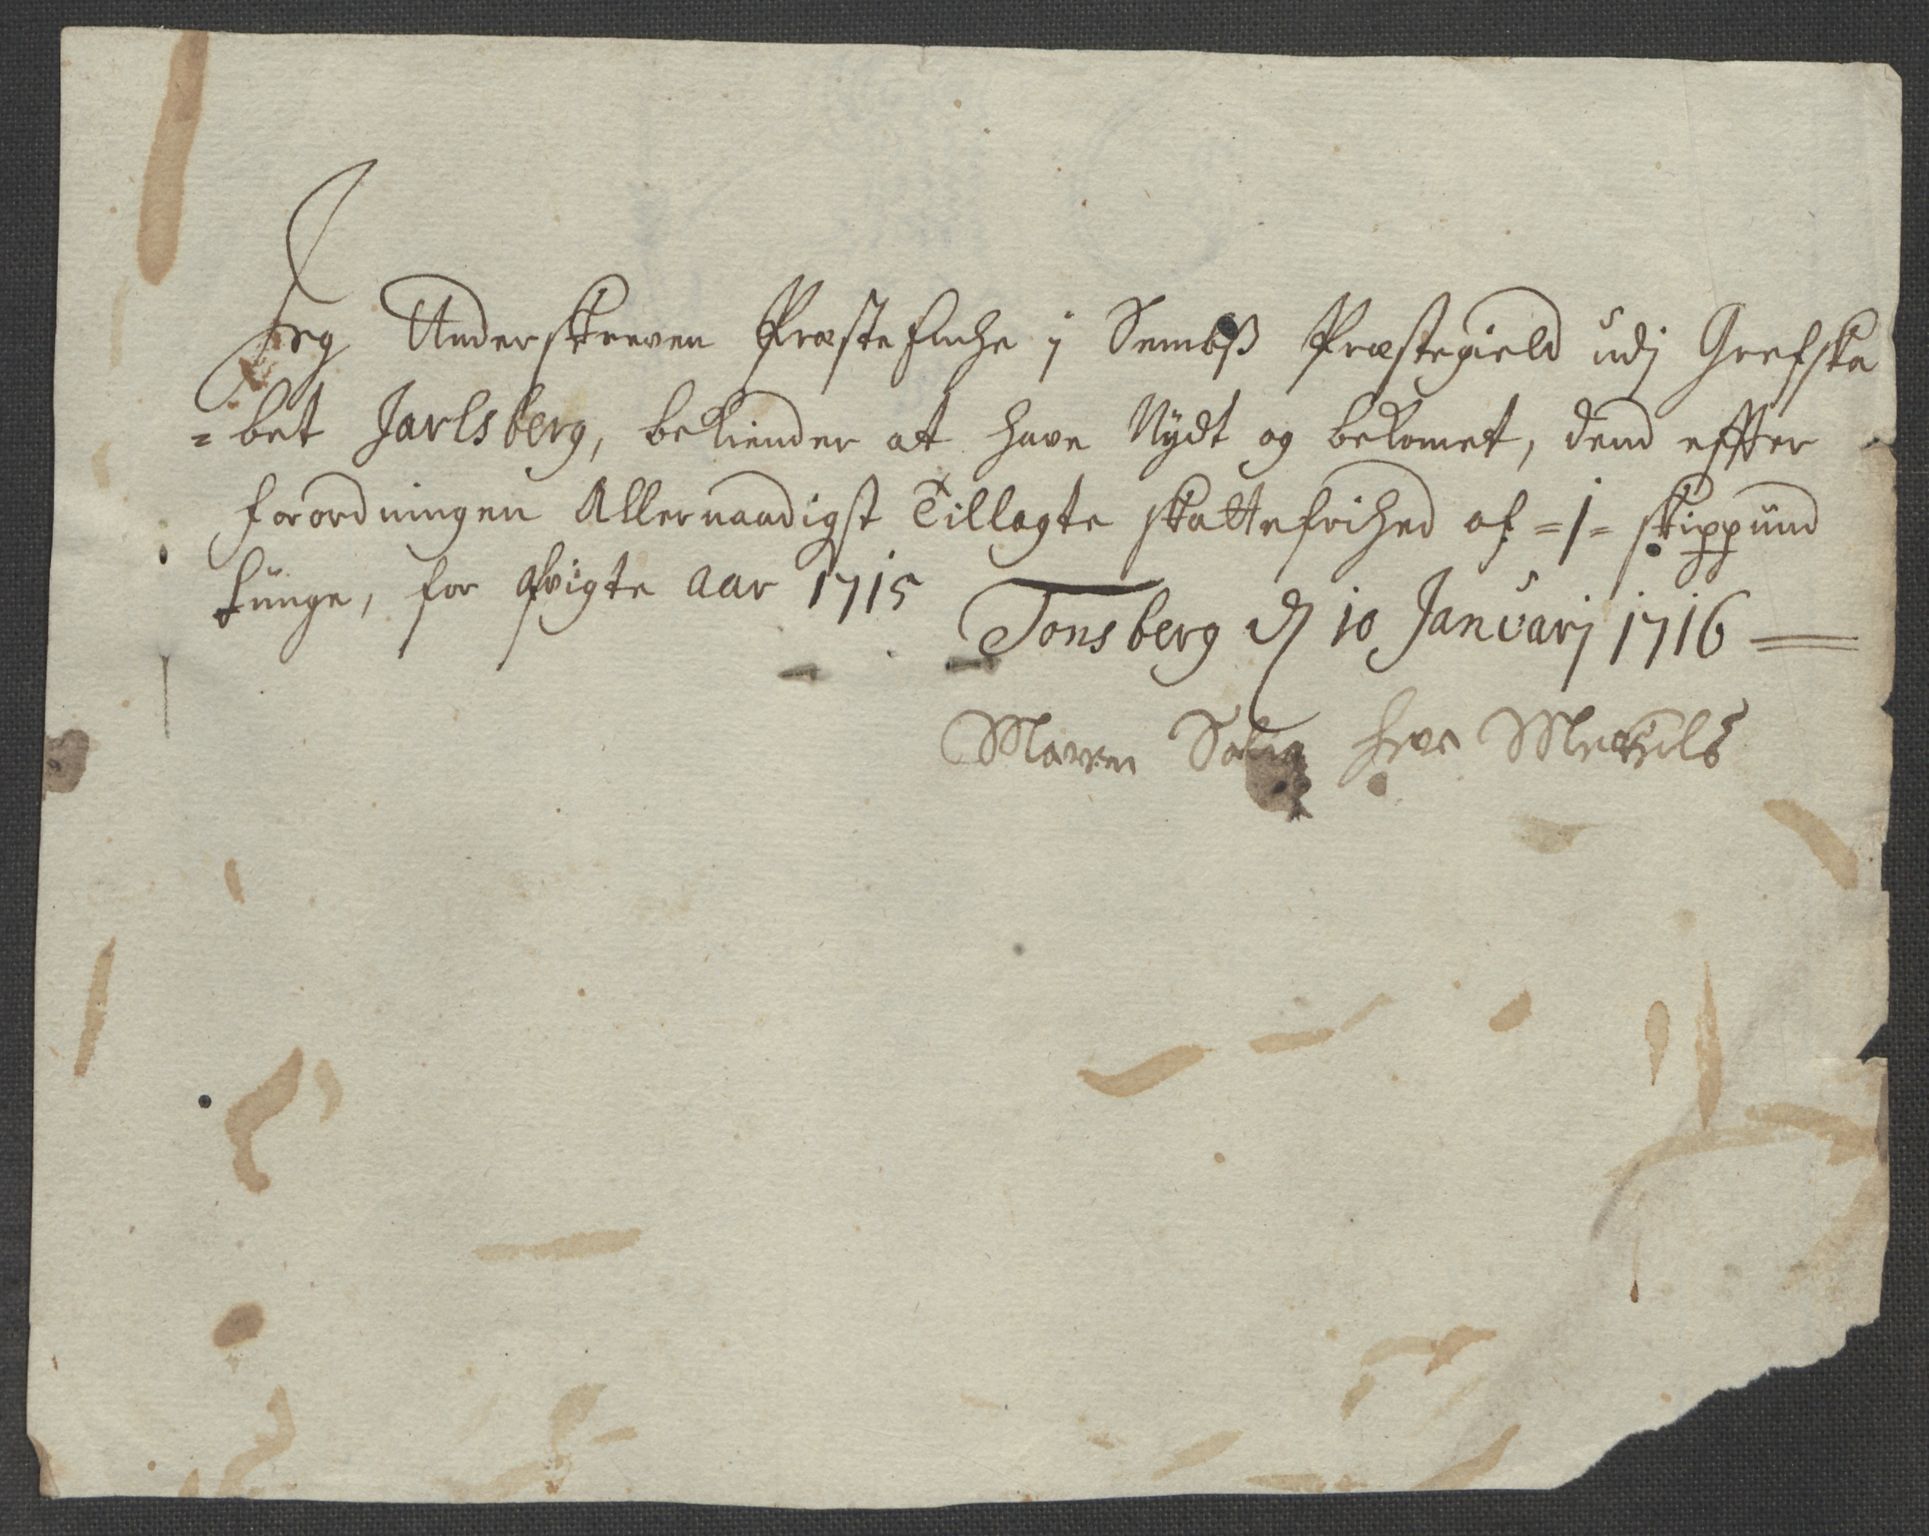 Jeg Underskreven Præste Enche i Sembß Præstegield udj Grefska
=bet Jarlsberg, bekiender at have Nydt og bekomet, dend effter
forordningen Allernaadigst Tillagte skattefrihed af =1= skippund
tunge, for afvigte Aar 1715
Tonsberg d 10 Januarj 1716
Maren Sal